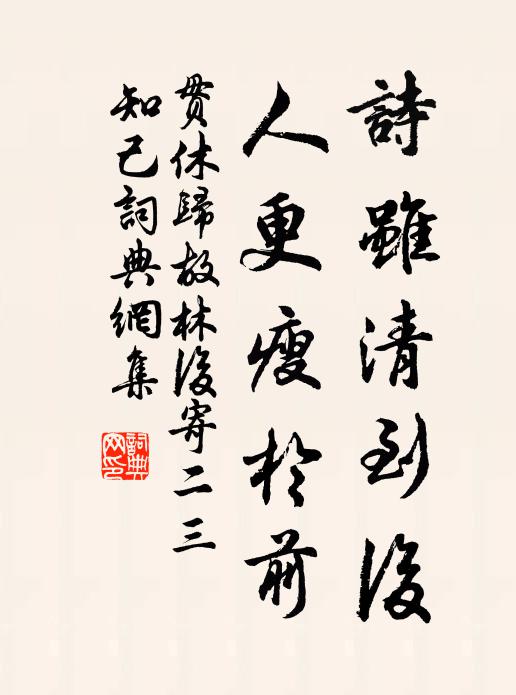 詩雖清到後
人更瘦於前
貫休歸故林後寄二三
知己詞典網集
詞典
网印